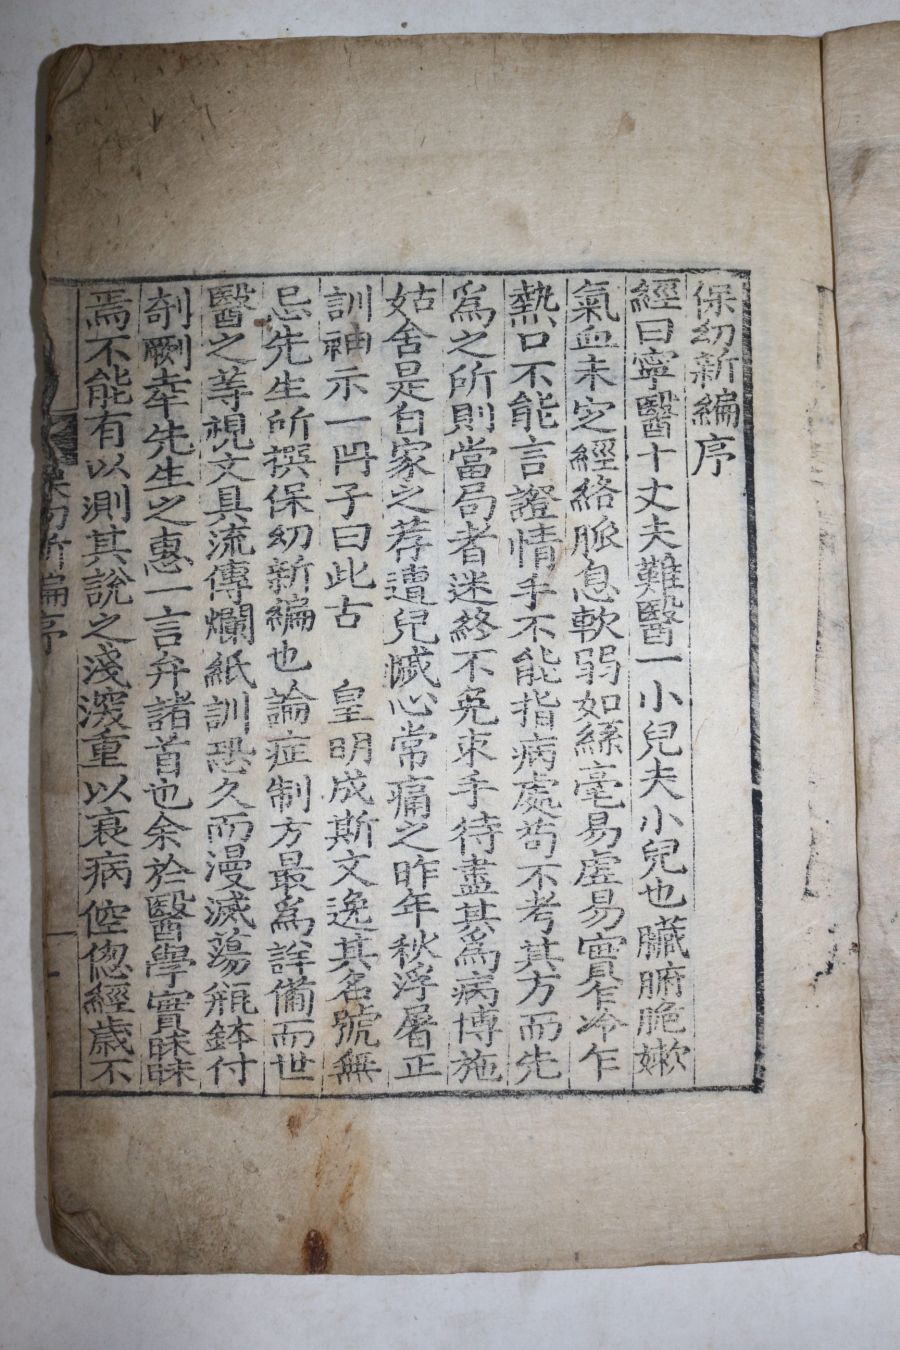 保幼新編序
經曰寧醫十丈夫難醫一小兒夫小兒也臟腑脆嫩
氣血未定經絡脈息軟弱如絲毫易虛易實乍冷乍
熱口不能言證情手不能指病處苟不考其方而先
爲之所則當局者迷終不免束手待盡其爲病博施
姑舍是自家之荐遭兒慽心常痛之昨年秋浮屠正
訓神示一冊子曰此古 皇明成斯文逸其名號無
忌先生所撰保幼新編也論症制方最爲詳備而世
醫之等視文具流傳爛紙訓恐久而漫滅蕩瓶鉢付
剞劂幸先生之惠一言弁諸首也余於醫學實昧昧
焉不能有以測其說之淺深重以衰病倥偬經歲不
保幼新編序